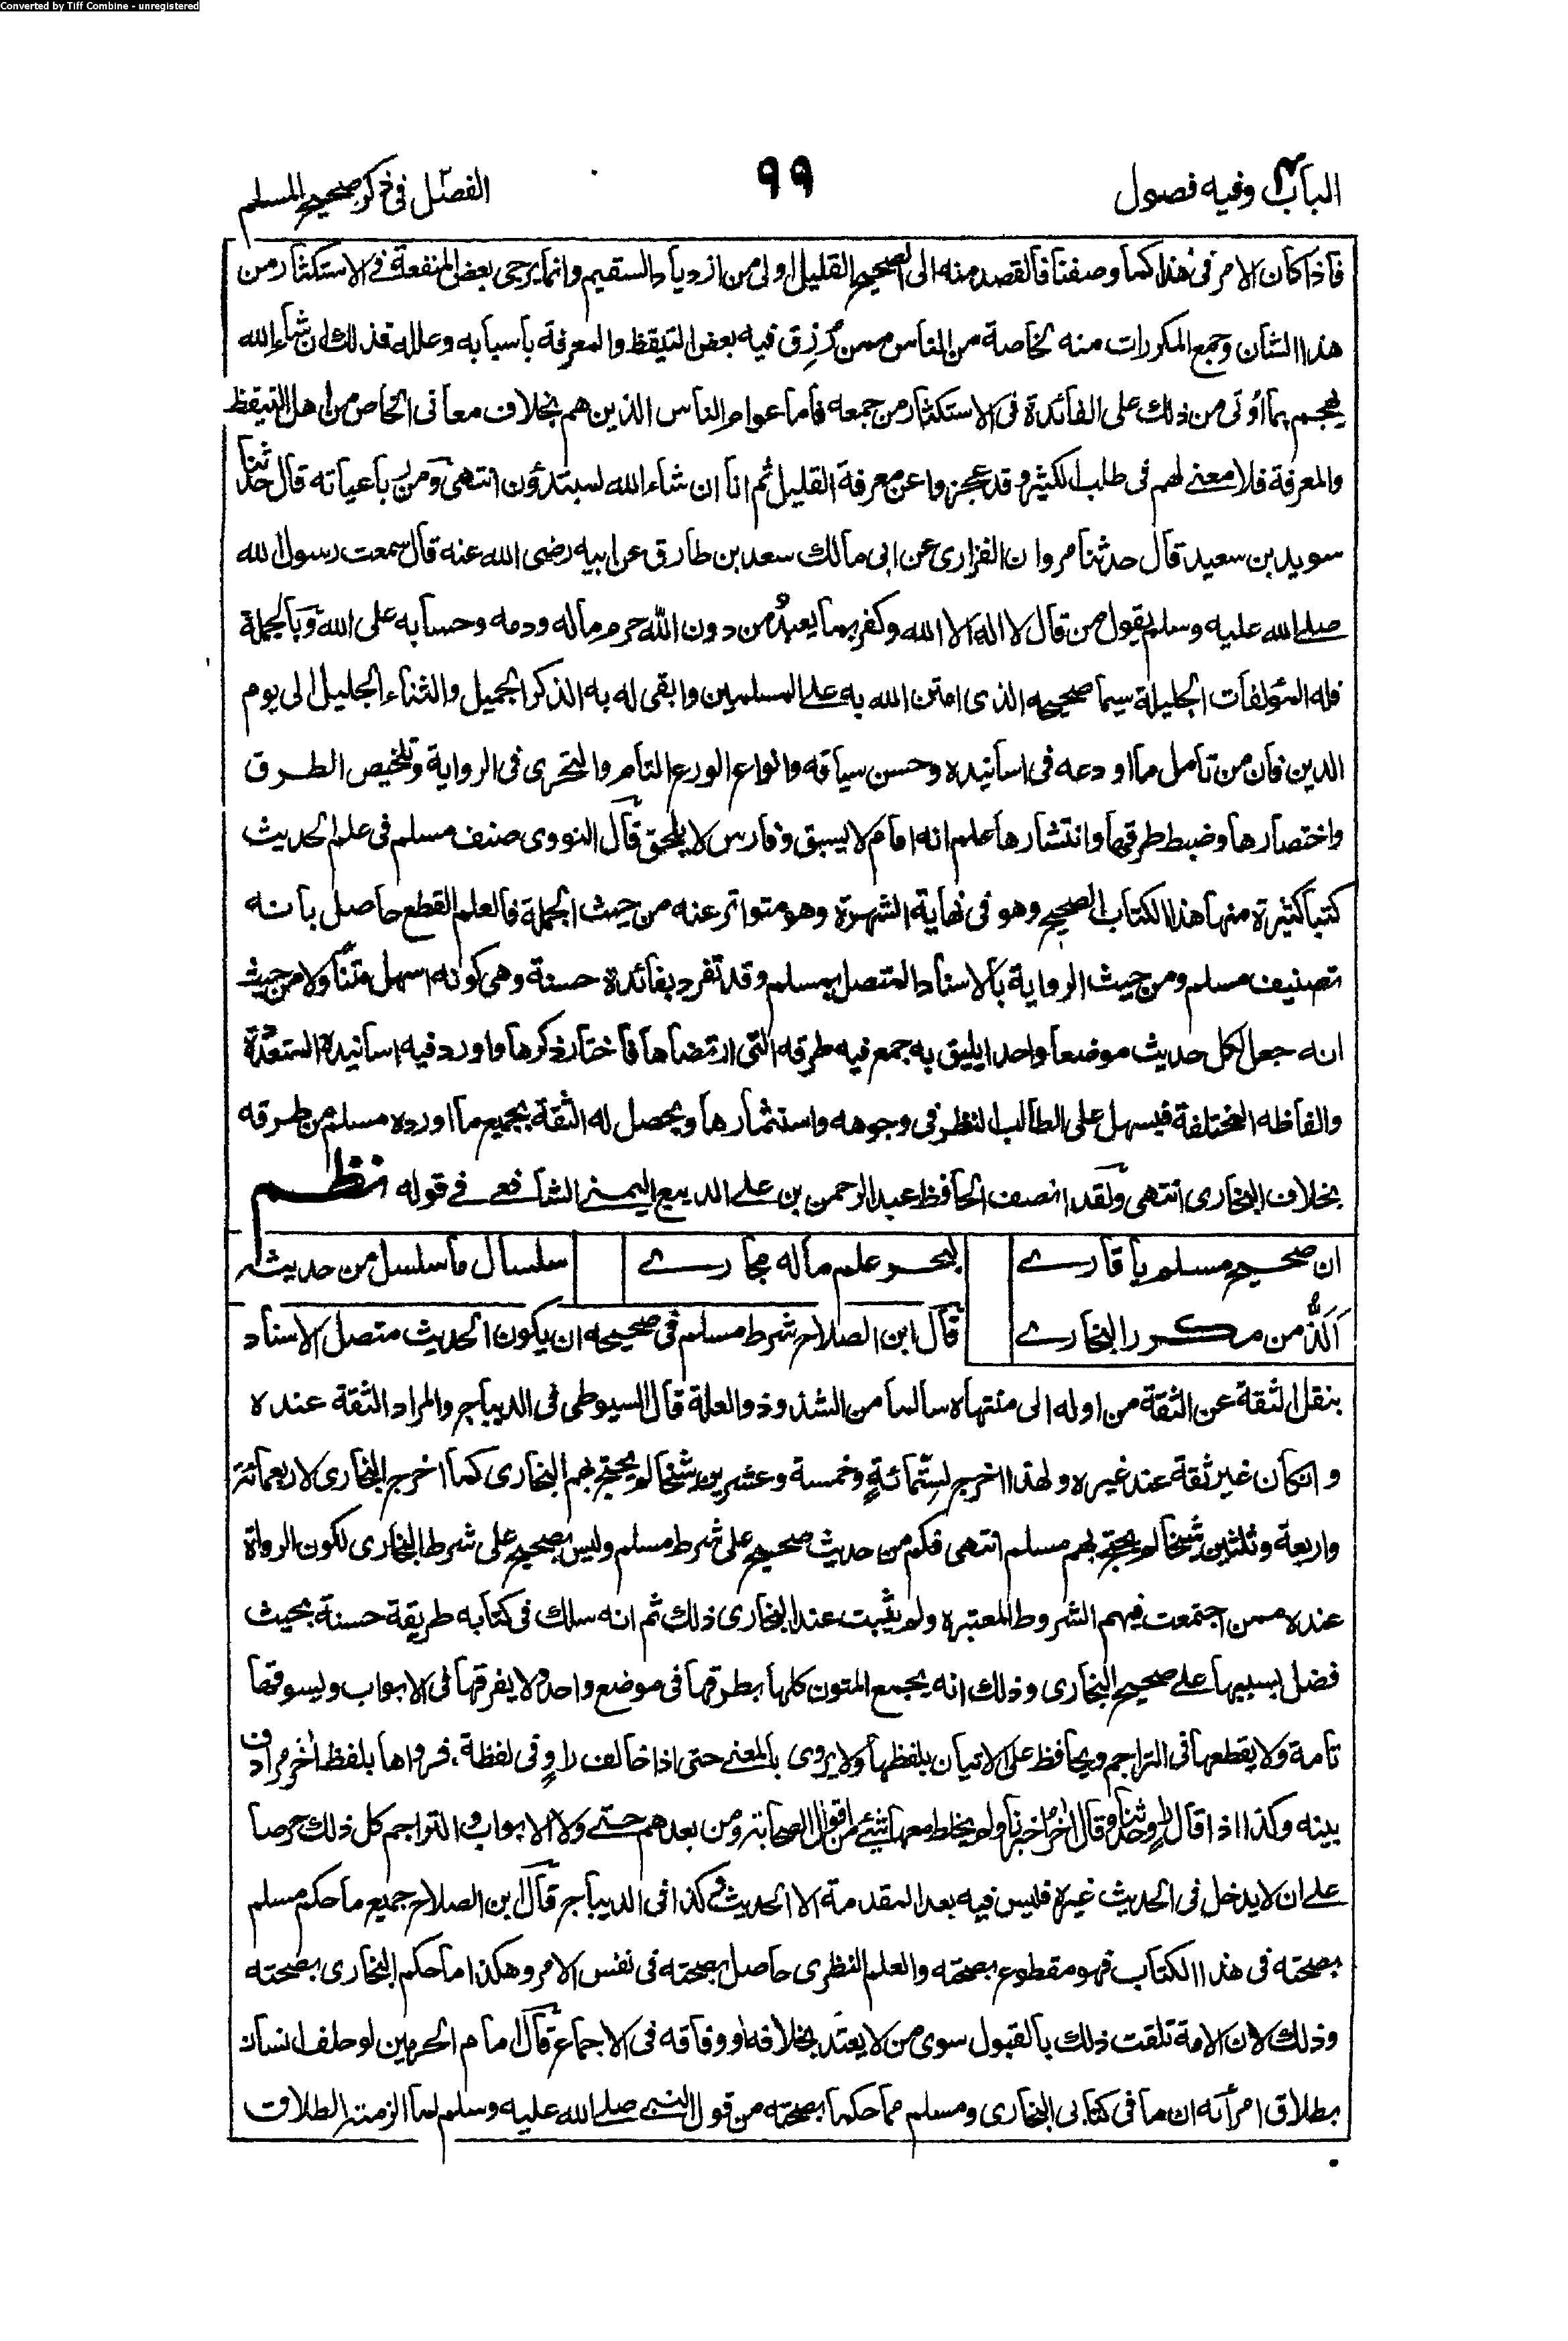 Converted by Tiff Combine - unregistered
الباب٤ وفيه فصول
٩٩
الفصل٢ فى ذكر صحيح المسلم
فاذا كان الامر فى هذا كما وصفنا فالقصد منه الى الصحيح القليل اولى من ازدياد السقيم وانما يرجى بعض المنفعة فى الاستكثار من
هذا الشان وجمع المكررات منه لخاصة من الناس ممن رُزِق فيه بعض التيقظ والمعرفة باسبابه وعلله فذلك ان شاء الله
يهجم بما اُوتى من ذلك على الفائدة فى الاستكثار من جمعه فاما عوام الناس الذين هم بخلاف معانى الخاص من اهل التيقظ
والمعرفة فلا معنى لهم فى طلب الكثير وقد عجزوا عن معرفة القليل ثم انا ان شاء الله لمبتدؤن انتهى ومن رباعياته قال حدثنا
سويد بن سعيد قال حدثنا مروان الفزارى عن ابى مالك سعد بن طارق عن ابيه رضى الله عنه قال سمعت رسول الله
صلى الله عليه وسلم يقول من قال لا اله الا الله وكفر بما يعبدُ من دون الله حرم ماله ودمه وحسابه على الله وبالجملة
فله المؤلفات الجليلة سيما صحيحه الذى امتن الله به على المسلمين وابقى له به الذكر الجميل والثناء الجليل الى يوم
الدين فان من تامل ما اودعه فى اسانيده وحسن سياقه وانواع الورع التام والتحرى فى الرواية وتلخيص الطرق
واختصارها وضبط طرقها وانتشارها علم انه امام لا يسبق وفارس لا يلحق قال النووى صنف مسلم فى علم الحديث
كتبا كثيرة منها هذا الكتاب الصحيح وهو فى نهاية الشهرة وهو متواتر عنه من حيث الجملة فالعلم القطع حاصل بانه
تصنيف مسلم ومن حيث الرواية بالاسناد المتصل بمسلم وقد تفرد بفائدة حسنة وهى كونه اسهل متناولا من حيث
انه جعل لكل حديث موضعا واحدا يليق به جمع فيه طرقه التى ارتضاها فاختار ذكرها واورد فيه اسانيده المتعددة
والفاظه المختلفة فيسهل على الطالب النظر فى وجوهه واستثمارها ويحصل له الثقة بجميع ما اورده مسلم من طرقه
بخلاف البخارى انتهى ولقد انصف الحافظ عبد الرحمن بن على الديبع اليمنى الشافعى فى قوله نظم
ان صحيح مسلم يا قارى لبحر علم ماله مجارى سلسال ما سلسل من حديثه
اَلَذُّ من مكرر البخارى قال ابن الصلاح شرط مسلم فى صحيحه ان يكون الحديث متصل الاسناد
بنقل الثقة عن الثقة من اوله الى منتهاه سالما من الشذوذ والعلة قال السيوطى فى الديباج والمراد الثقة عنده
وان كان غير ثقة عند غيره ولهذا اخرج لستمائةٍ وخمسة وعشرين شيخا لم يحتج بهم البخارى كما اخرج البخارى لاربعمائة
واربعة وثلثين شيخا لم يحتج بهم مسلم انتهى فكم من حديث صحيح على شرط مسلم وليس بصحيح على شرط البخارى لكون الرواة
عنده ممن اجتمعت فيهم الشروط المعتبره ولم يثبت عند البخارى ذلك ثم انه سلك فى كتابه طريقة حسنة بحيث
فضل بسببها على صحيح البخارى وذلك انه يجمع المتون كلها بطرقها فى موضع واحد ولا يفرقها فى الابواب ويسوقها
تامة ولا يقطعها فى التراجم ويحافظ على الاتيان بلفظها ولا يروى بالمعنى حتى اذا خالف راوٍ فى لفظة فرواها بلفظ اخر مرادف
بينه وكذا اذا قال راوٍ حدثنا وقال اخر اخبرنا ولم يخلط معها شئ من اقوال الصحابة ومن بعدهم حتى ولا الابواب والتراجم كل ذلك حرصا
على ان لا يدخل فى الحديث غيره فليس فيه بعد المقدمة الا الحديث كذا فى الديباج قال ابن الصلاح جميع ما حكم مسلم
بصحته فى هذا الكتاب فهو مقطوع بصحته والعلم النظرى حاصل بصحته فى نفس الامر وهكذا ما حكم البخارى بصحته
وذلك لان الامة تلقت ذلك بالقبول سوى من لا يعتد بخلافه او وفاقه فى الاجماع قال امام الحرمين لو حلف انسان
بطلاق امرأته ان ما فى كتابى البخارى ومسلم مما حكما بصحته من قول النبى صلى الله عليه وسلم لما الزمته الطلاق